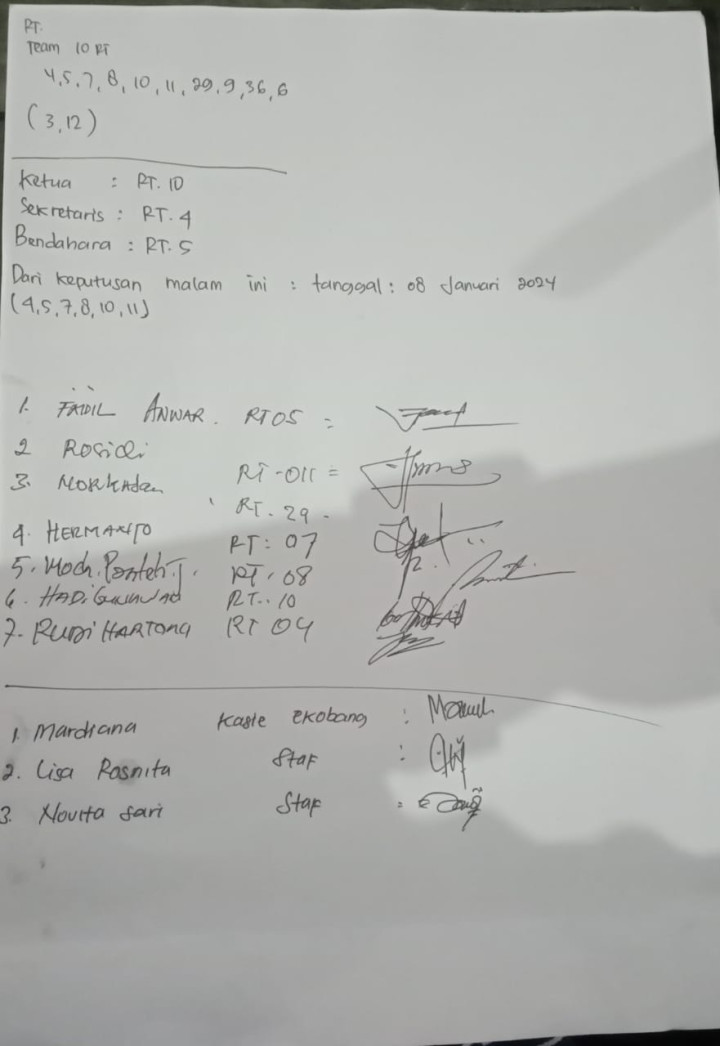 RT.
Team 10 RT
4,5,7,8,10,11,29,9,36,6
(3,12)
Ketua : RT. 10
Sekretaris : RT. 4
Bendahara : RT. 5
Dari keputusan malam ini : tanggal : 08 Januari 2024
(4,5,7,8,10,11)
1. FADIL ANWAR. RT 05 =
2 Rosidi RT-011 =
3. Norkadan RT. 29 -
4. HERMANTO RT: 07
5. Moch. RT. 08
6. HADI GUNAWAN RT. 10
7. RUDI HARTONO RT 04
1. Mardiana Kasie ekobang :
2. Lisa Rosnita Staf :
3. Novita sari Staf :